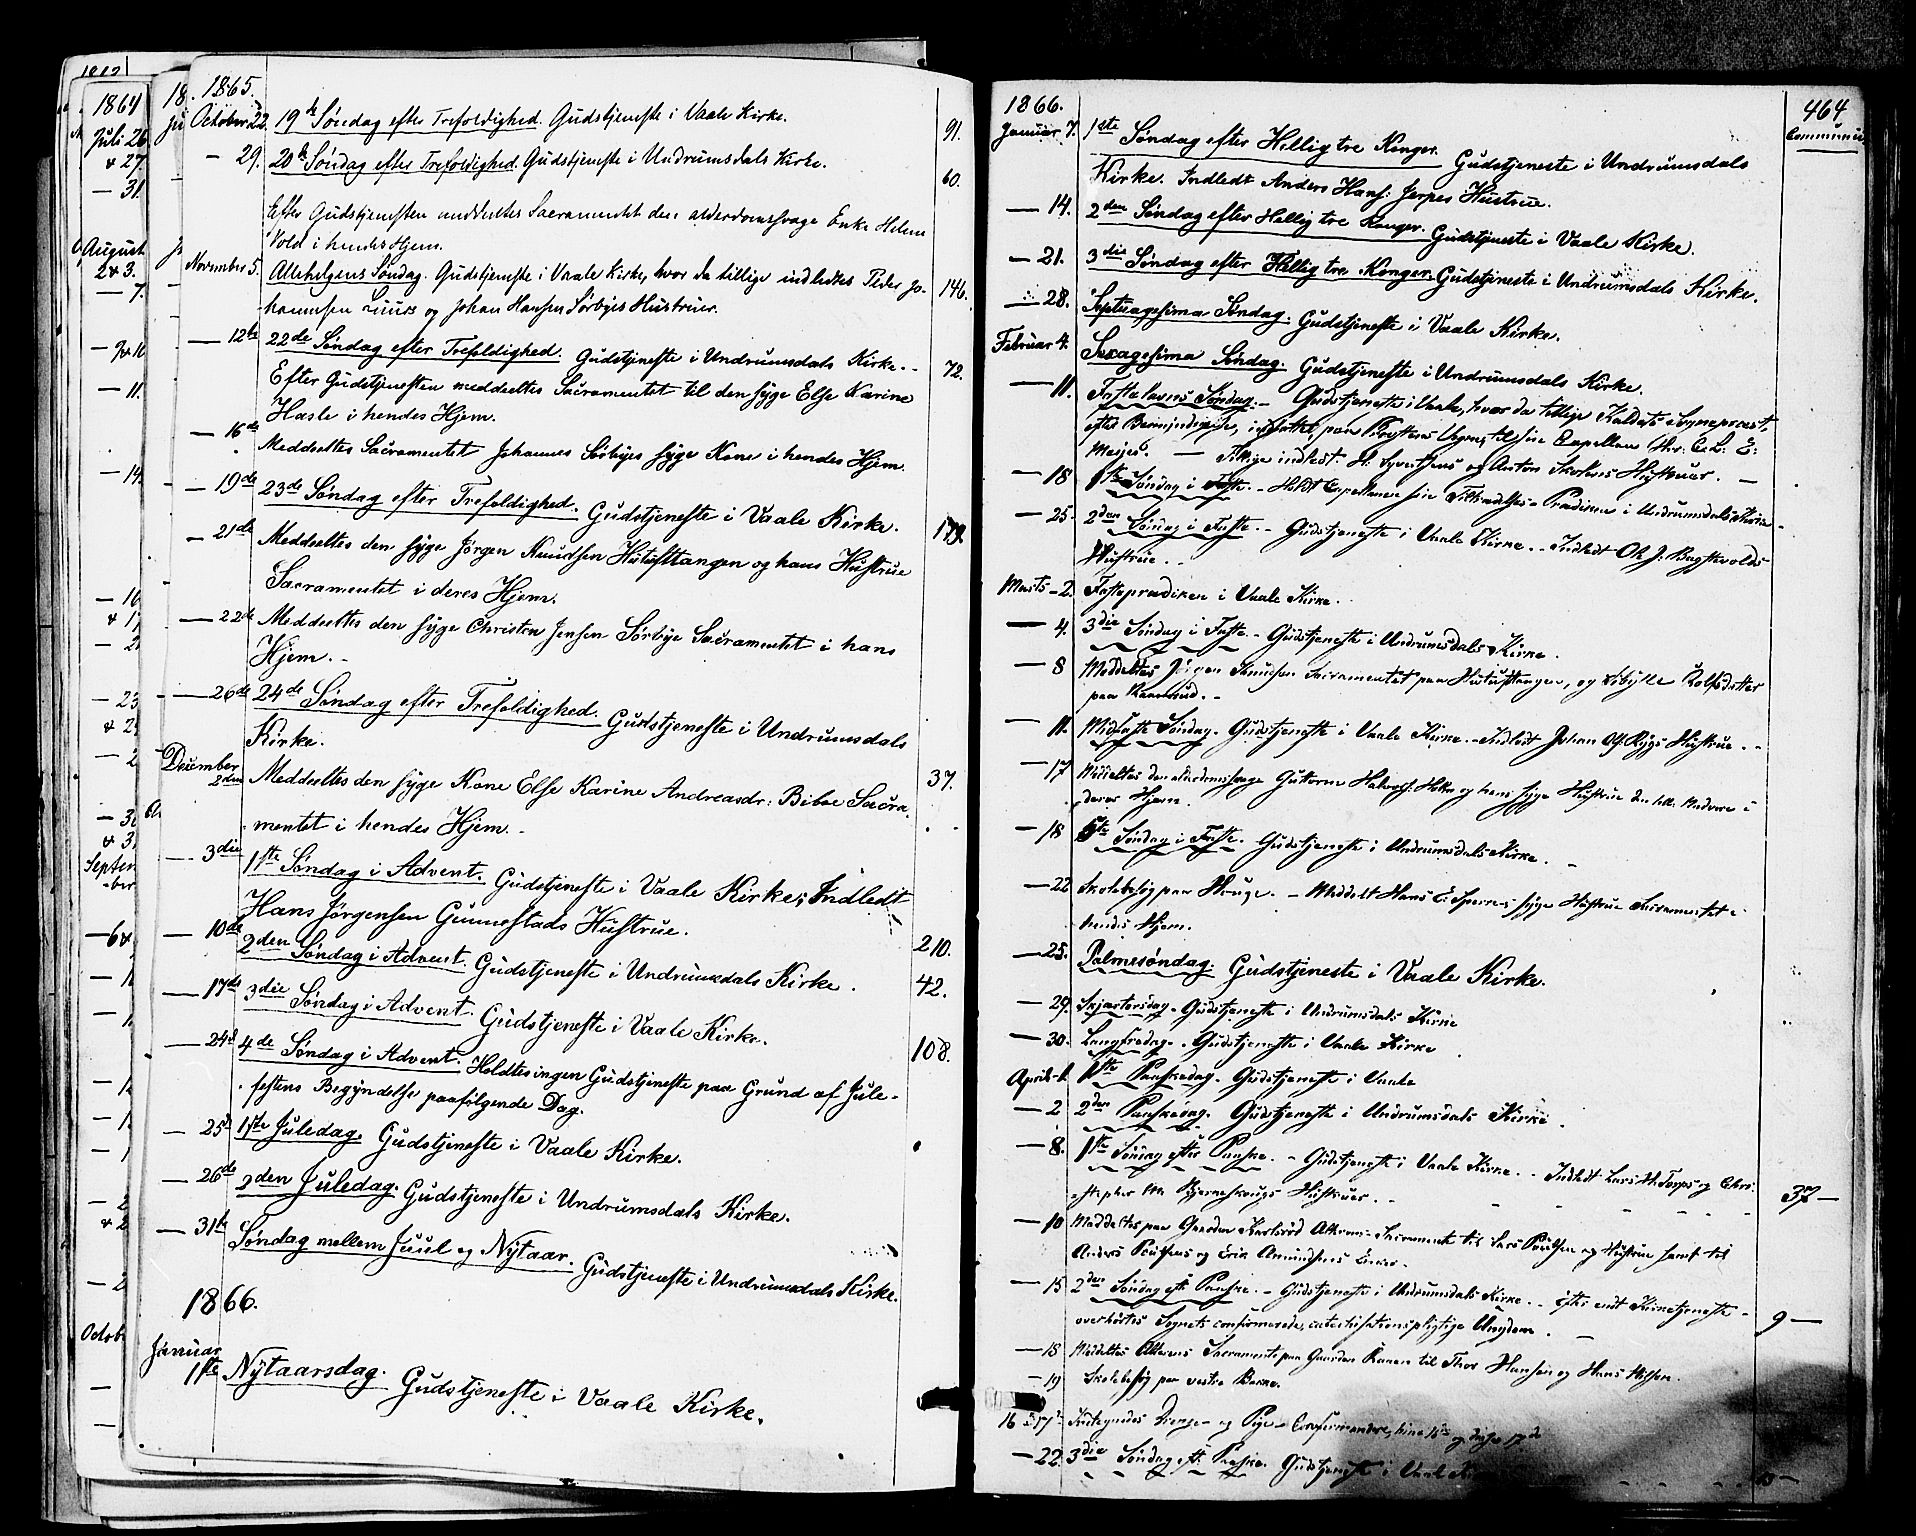 1865.
October 22. 19de Søndag efter Trefoldighed. Gudstjeneste i Vaale Kirke. 91.
— 29. 20de Søndag efter Trefoldighed. Gudstjeneste i Undrumsdals Kirke. 60.
Efter Gudstjenesten meddeeltes Sacramentet den alderdomssvage Enke Helene
Vold i hendes Hjem.
November 5. Allehelgens Søndag. Gudstjeneste i Vaale Kirke, hvor da tillige indledtes Peder Jo- 146.
hannesen og Johan Hansen Sørbyes Hustruer.
— 12te 22de Søndag efter Trefoldighed. Gudstjeneste i Undrumsdals Kirke. 72.
Efter Gudstjenesten meddeeltes Sacramentet til den syge Else Karine
Hasle i hendes Hjem.
— 16de Meddeeltes Sacramentet Johannes Sørbyes syge Kone i hendes Hjem.
— 19de 23de Søndag efter Trefoldighed. Gudstjeneste i Vaale Kirke. 179.
— 21de Meddeeltes den syge Jørgen Knudsen Hutufttangen og hans Hustrue
Sacramentet i deres Hjem.
— 22de Meddeeltes den syge Christen Jensen Sørbye Sacramentet i hans
Hjem.
— 26de 24de Søndag efter Trefoldighed. Gudstjeneste i Undrumsdals
Kirke. 37.
December 2den Meddeeltes den syge Kone Else Karine Andreasdr: Biboe Sacra-
mentet i hendes Hjem.
— 3die 1ste Søndag i Advent. Gudstjeneste i Vaale Kirke; Indledt
Hans Jørgensen Gunnestads Hustrue. 210.
— 10de 2den Søndag i Advent. Gudstjeneste i Undrumsdals Kirke. 42.
— 17de 3die Søndag i Advent. Gudstjeneste i Vaale Kirke. 108.
— 24de 4de Søndag i Advent. Holdtes ingen Gudstjeneste paa Grund af Jule-
festens Begyndelse paafølgende Dag.
— 25de 1ste Juledag. Gudstjeneste i Vaale Kirke.
— 26de 2den Juledag. Gudstjeneste i Undrumsdals Kirke.
— 31te Søndag mellem Juul og Nytaar. Gudstjeneste i Undrumsdals Kirke.
1866.
Januar
1ste Nytaarsdag. Gudstjeneste i Vaale Kirke.
1866. 464
Communic.
Januar 7. 1ste Søndag efter Hellig tre Konger. Gudstjeneste i Undrumsdals
Kirke. Indledt Anders Hans: Jerpes Hustrue.
— 14. 2den Søndag efter Hellig tre Konger. Gudstjeneste i Vaale Kirke.
— 21. 3die Søndag efter Hellig tre Konger. Gudstjeneste i Undrumsdals Kirke.
— 28. Septuagesima Søndag. Gudstjeneste i Vaale Kirke.
Februar 4. Sexagesima Søndag. Gudstjeneste i Undrumsdals Kirke.
— 11. Fastelavns Søndag. Gudstjeneste i Vaale, hvor da tillige Sognepræst
efter til sin Capellan Hr. C. L. E.
Meyer. — Tillige indledt og Anton Hustruer.
— 18 1ste Søndag i Faste. — Holdt Capellanen sin Tiltrædelses-Prædiken i Undrumsdals Kirke
— 25. 2den Søndag i Faste. — Gudstjeneste i Vaale Kirke. — Indledt Ole J.
Hustrue.
Marts 2. Fasteprædiken i Vaale Kirke.
— 4. 3die Søndag i Faste. — Gudstjeneste i Undrumsdals Kirke.
— 8 Meddeltes Jörgen Knudsen Sacramentet paa Hutufttangen, og Rolfsdatter
paa
— 11. Midfaste Søndag. Gudstjeneste i Vaale Kirke. — Indledt Johan Hustrue.
— 17 Meddeltes den alderdomssvage Guttorm og hans syge Hustrue den hell. Nadvere i
deres Hjem.
— 18 5te Søndag i Faste. Gudstjeneste i Undrumsdals Kirke.
— 22 Skolebesøg paa Hauge. — Meddelt Hans syge Hustrue Sacramentet i
hendes Hjem.
— 25. Palmesøndag. Gudstjeneste i Vaale Kirke.
— 29. Skjærtorsdag. Gudstjeneste i Undrumsdals Kirke
— 30. Langfredag. Gudstjeneste i Vaale Kirke
April 1. 1ste Paaskedag. Gudstjeneste i Vaale
— 2 2den Paaskedag. Gudstjeneste i Undrumsdals Kirke.
— 8. 1ste Søndag efter Paaske. — Gudstjeneste i Vaale Kirke. — Indledt Lars og Chri-
Hustruer. 37 —
— 10 Meddeltes paa Gaarden Alterens Sacramente til Lars Paulsen og Hustrue samt til
Anders og Amundsens Enker.
— 15 2den Søndag eft. Paaske. — Gudstjeneste i Undrumsdals Kirke. — Efter endt Kirketjeneste
overhørtes Sognets confirmerede, catechisationspligtige Ungdom. 9 —
— 18 Meddeltes Alterens Sacramente paa Gaarden til Thor Hansen og Hans Nilsen.
— 19 Skolebesøg paa vestre
16 & 17 Drenge- og Pige-Confirmandere, hine 16de og disse 17de
— 22 3die Søndag eft. Paaske. Gudstjeneste i Vaale
1864
Juli 26
& 27.
— 31
August
2 & 3.
— 7.
— 11.
— 14.
Septem-
ber